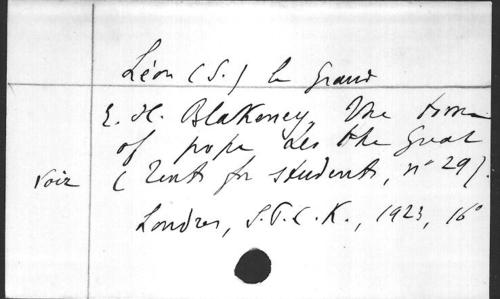 Léon (S.) le Grand
E. H. Blakeney, The tome
of pope Leo the Great
voir (Texts for students, n° 29).
Londres, S.P.C.K., 1923, 16°